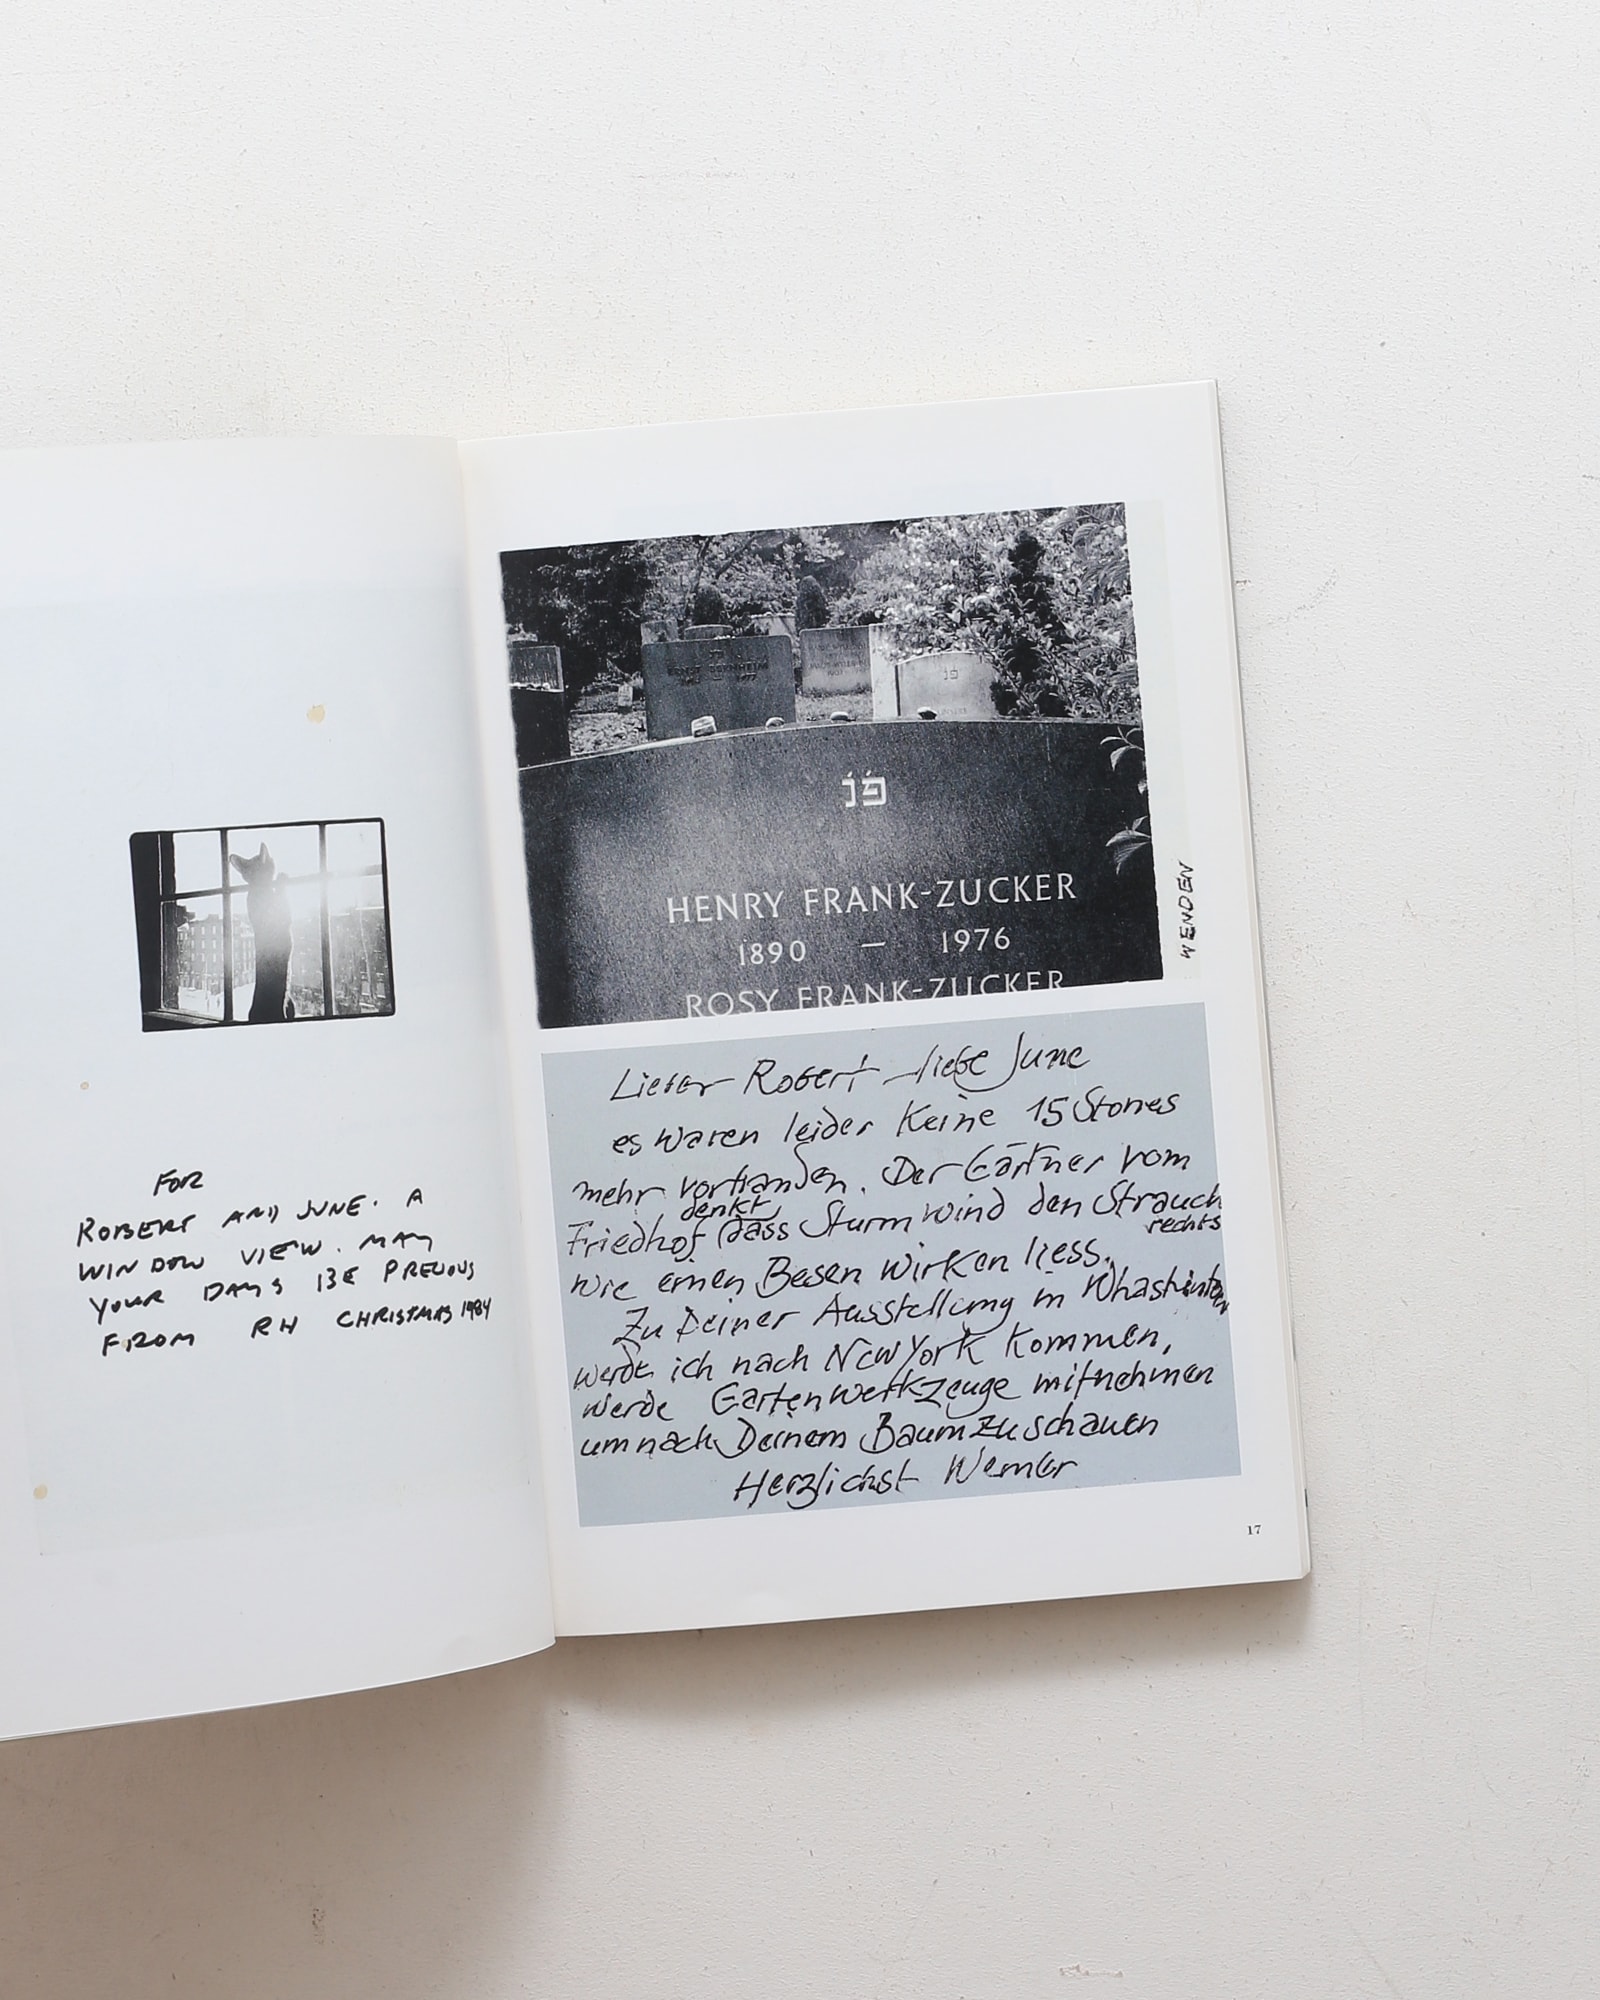 FOR
ROBERT AND JUNE. A
WINDOW VIEW. MAY
YOUR DAYS BE PRECIOUS
FROM RH CHRISTMAS 1984
פֿנֿ
HENRY FRANK-ZUCKER
1890 — 1976
ROSY FRANK-ZUCKER
WENDEN
Lieber Robert – liebe June
es waren leider Keine 15 Stones
mehr vorhanden. Der Gärtner vom
Friedhof denkt dass Sturmwind den Strauch rechts
wie einen Besen wirken liess.
Zu Deiner Ausstellung in Whashinton
werde ich nach New York Kommen,
werde Gartenwerkzeuge mitnehmen
um nach Deinem Baum zu schauen
Herzlichst Werner
17